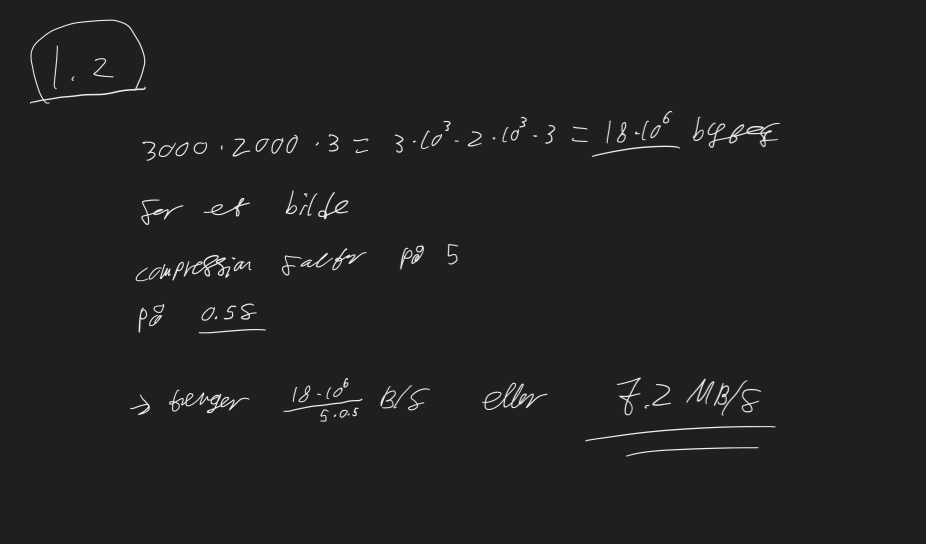 1.2
3000 · 2000 · 3 = 3·10³ · 2·10³ · 3 = 18·10⁶ bytes
for et bilde
compression faktor på 5
på 0.5s
→ trenger 18·10⁶/5·0.5 B/s eller 7.2 MB/s